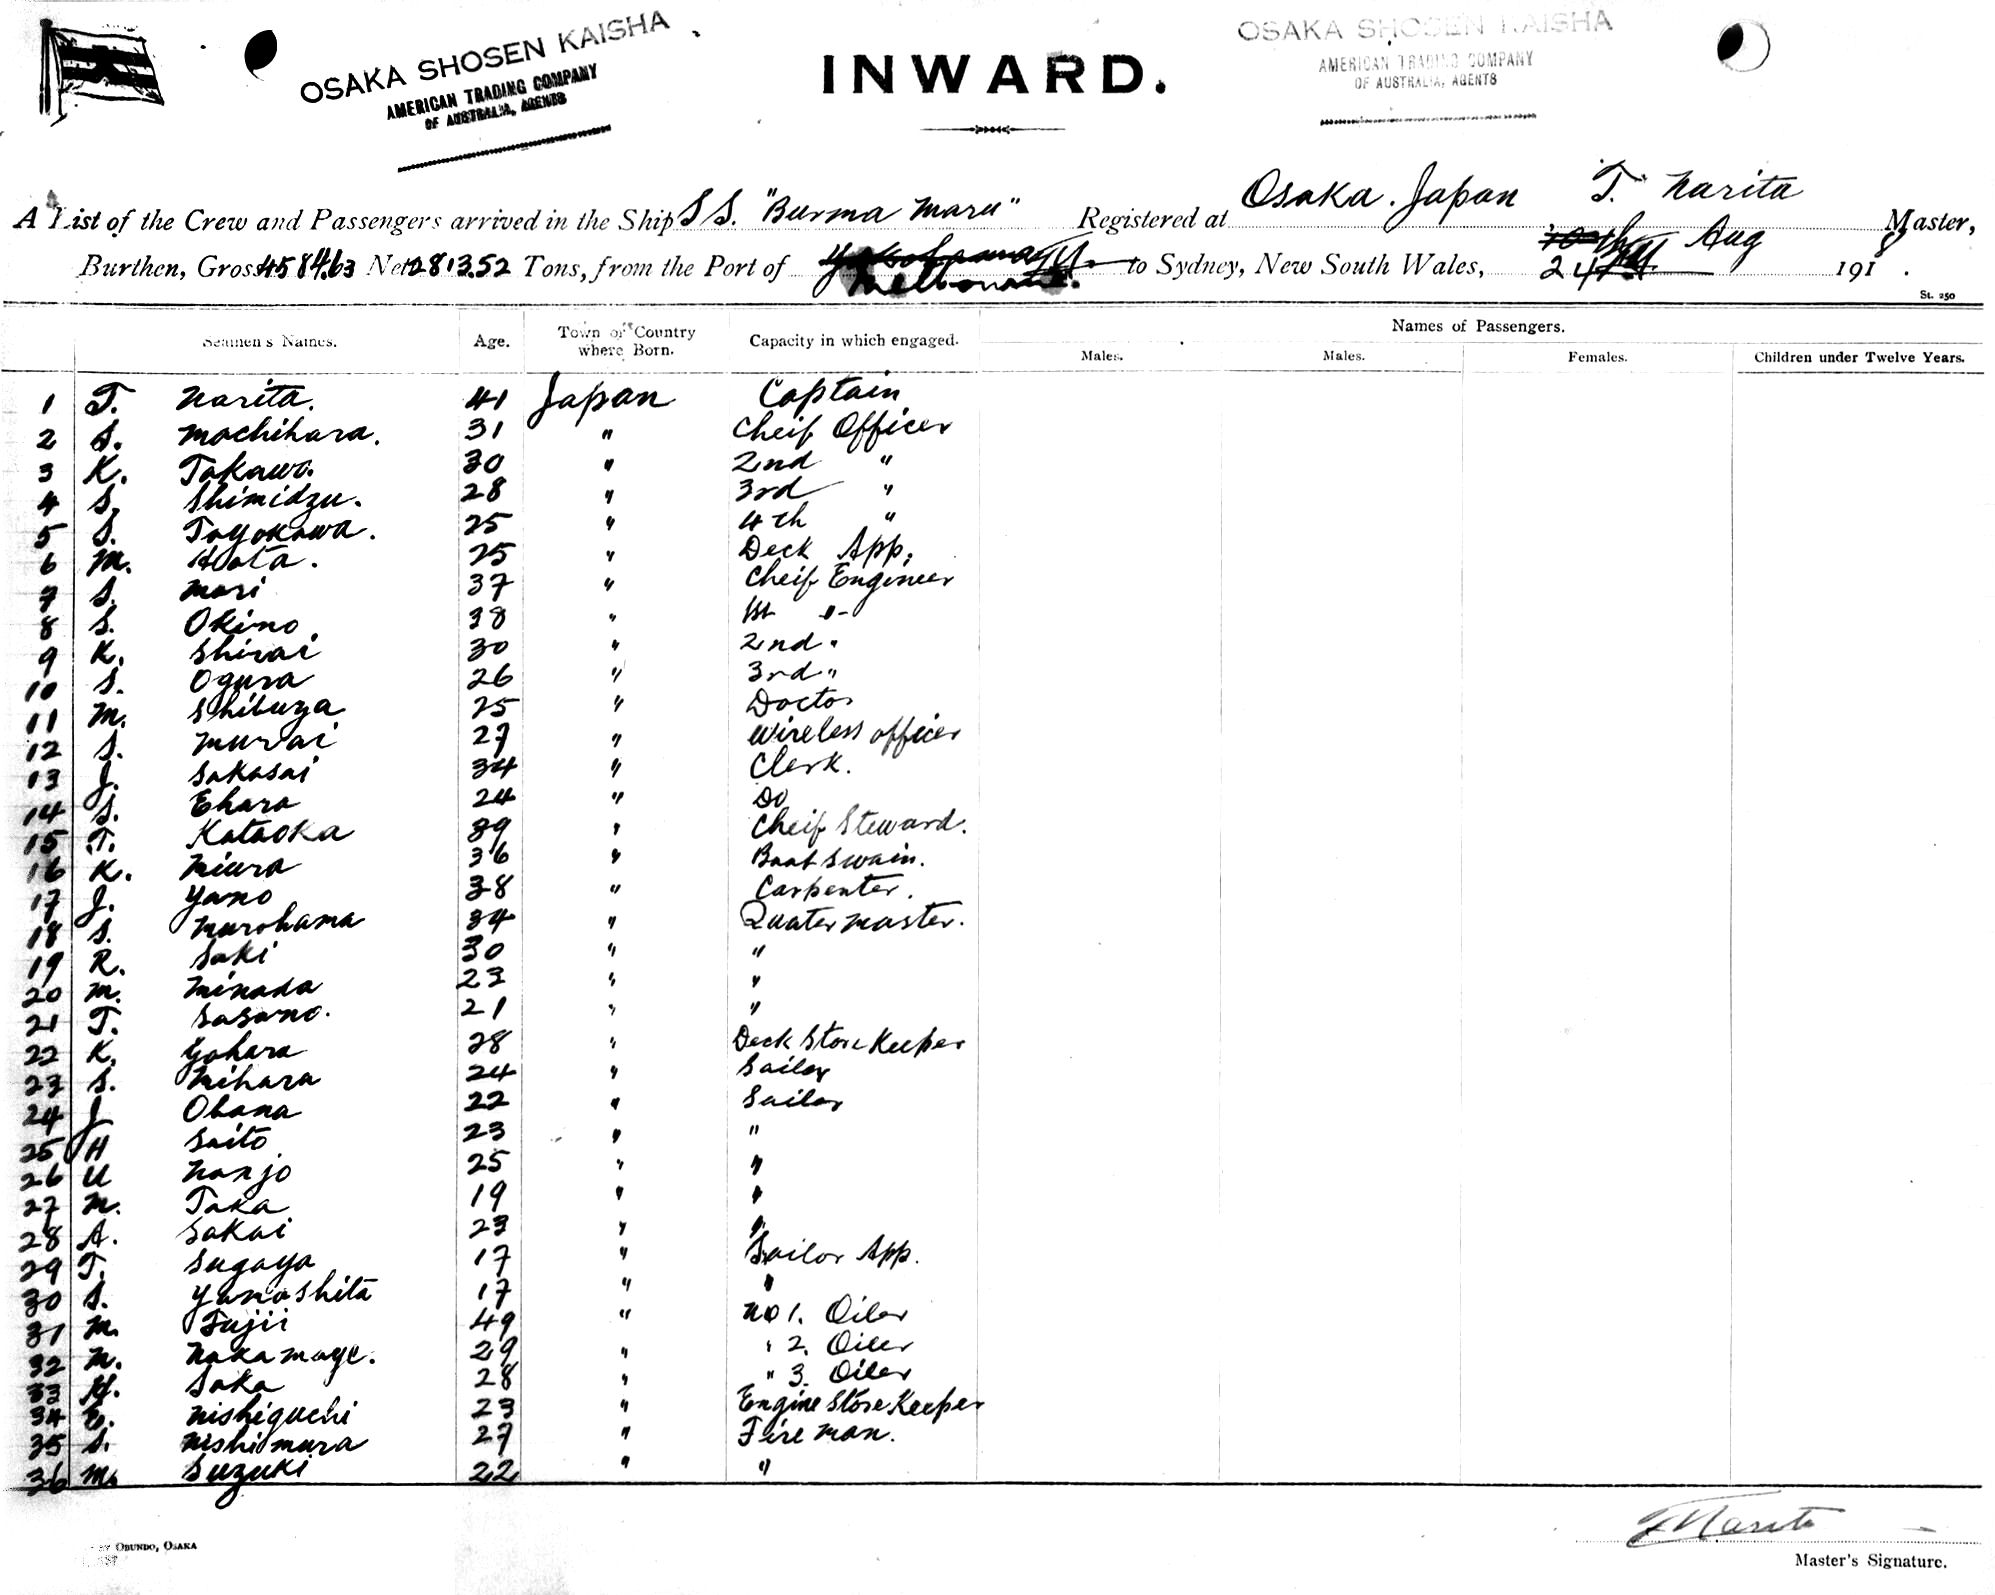 OSAKA SHOSEN KAISHA
AMERICAN TRADING COMPANY
OF AUSTRALIA, AGENTS
INWARD.
OSAKA SHOSEN KAISHA
AMERICAN TRADING COMPANY
OF AUSTRALIA, AGENTS
A List of the Crew and Passengers arrived in the Ship SS. "Burma Maru" Registered at Osaka. Japan T. Narita Master,
Burthen, Gross 4584.63 Net 2813.52 Tons, from the Port of Yokohama Melbourne. to Sydney, New South Wales, 24th Aug 1918.
St. 250
Seamen's Names. Age. Town or Country where Born. Capacity in which engaged. Names of Passengers.
Males. Males. Females. Children under Twelve Years.
1 T. Narita. 41 Japan Captain
2 S. Mochihara. 31 " Cheif Officer
3 K. Takawa. 30 " 2nd "
4 S. Shimidzu. 28 " 3rd "
5 S. Toyokawa. 25 " 4th "
6 M. Hota. 25 " Deck App.
7 S. Mori 37 " Cheif Engineer
8 S. Okino 38 " 1st "
9 K. Shirai 30 " 2nd "
10 S. Ogura 26 " 3rd "
11 M. Shibuya 25 " Doctor
12 S. Murai 27 " Wireless officer
13 J. Sakasai 34 " Clerk.
14 S. Ehara 24 " Do
15 T. Kataoka 39 " Cheif Steward.
16 K. Miura 36 " Boat swain.
17 J. Yano 38 " Carpenter.
18 S. Murohama 34 " Quater master.
19 R. Saki 30 " "
20 M. Minada 23 " "
21 T. Sasano. 21 " "
22 K. Gohara 28 " Deck Store Keeper
23 S. Mihara 24 " Sailor
24 J Obana 22 " Sailor
25 H Saito 23 " "
26 U Nanjo 25 " "
27 M. Taka 19 " "
28 A. Sakai 23 " "
29 T. Sugaya 17 " Sailor App.
30 S. Yamashita 17 " "
31 M. Fujii 49 " No 1. Oiler
32 N. Nakamaye. 29 " " 2. Oiler
33 H. Saka 28 " " 3. Oiler
34 E. Nishiguchi 23 " Engine Store Keeper
35 S. Nishimura 27 " Fire man.
36 M. Suzuki 22 " "
T Narita
Master's Signature.
OBUNDO, OSAKA